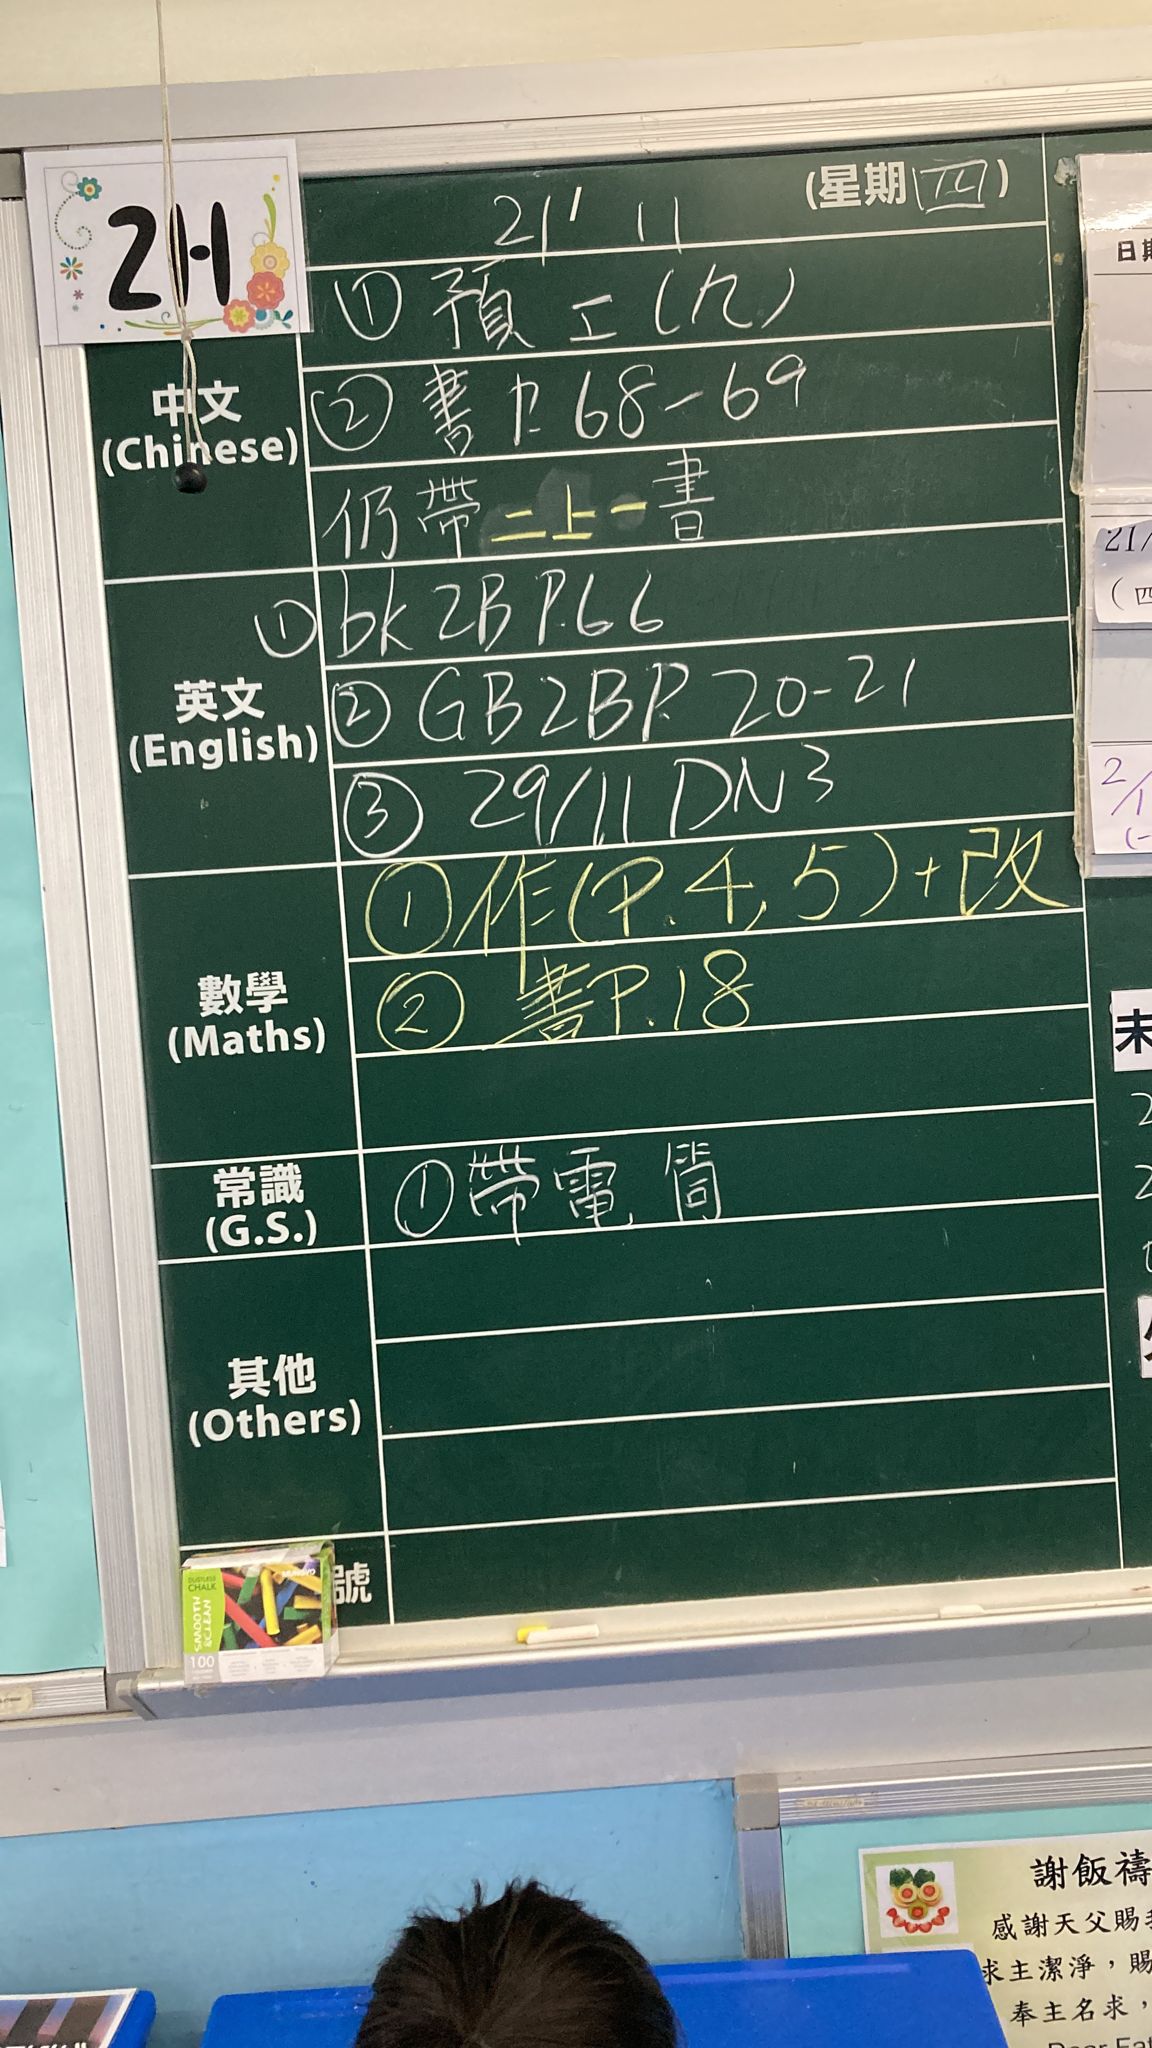 2H
21/11
(星期四)
中文
(Chinese)
① 預工(九)
② 書P.68-69
仍帶二上一書
英文
(English)
① bk 2B P.66
② GB2B P.20-21
③ 29/11 DN3
數學
(Maths)
① 作(P.4,5)+改
② 書P.18
常識
(G.S.)
① 帶電筒
其他
(Others)
號
DUSTLESS
CHALK
SMOOTH
&CLEAN
100
日期
21/
(四
2/1
(一
未
2
2
謝飯禱
感謝天父賜我
求主潔淨，賜
奉主名求，